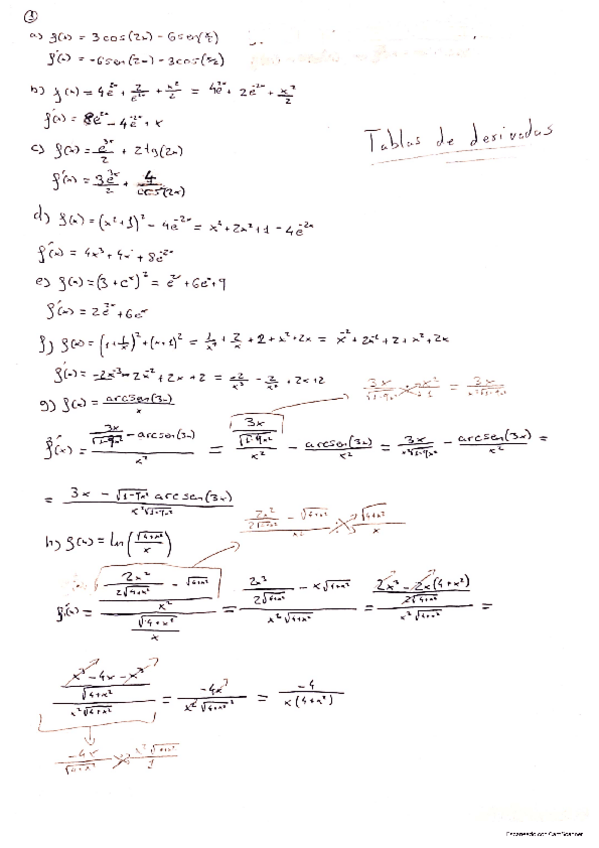 ①
a) f(x) = 3cos(2x) - 6sen(x/2)
f'(x) = -6sen(2x) - 3cos(x/2)
b) f(x) = 4e^2x + 2/e^2x + x²/2 = 4e^2x + 2e^-2x + x²/2
f'(x) = 8e^2x - 4e^-2x + x
Tablas de derivadas
c) f(x) = e^3x/2 + 2tg(2x)
f'(x) = 3e^3x/2 + 4/cos²(2x)
d) f(x) = (x²+1)² - 4e^-2x = x⁴ + 2x² + 1 - 4e^-2x
f'(x) = 4x³ + 4x + 8e^-2x
e) f(x) = (3 + e^x)² = e^2x + 6e^x + 9
f'(x) = 2e^2x + 6e^x
f) f(x) = (1 + 1/x)² + (x+1)² = 1/x² + 2/x + 2 + x² + 2x = x^-2 + 2x^-1 + 2 + x² + 2x
f'(x) = -2x^-3 - 2x^-2 + 2x + 2 = -2/x³ - 2/x² + 2x + 2
g) f(x) = arcsen(3x)/x
f'(x) = (3x/√(1-9x²) - arcsen(3x))/x² = (3x/√(1-9x²))/x² - arcsen(3x)/x² = 3x/(x²√(1-9x²)) - arcsen(3x)/x² =
= (3x - √(1-9x²) arcsen(3x))/(x²√(1-9x²))
h) f(x) = ln(√(4+x²)/x)
f'(x) = ((2x²/(2√(4+x²)) - √(4+x²))/x²)/(√(4+x²)/x) = (2x³/(2√(4+x²)) - x√(4+x²))/(x²√(4+x²)) = ((2x³ - 2x(4+x²))/(2√(4+x²)))/(x²√(4+x²)) =
((x³ - 4x - x³)/√(4+x²))/(x²√(4+x²)) = -4x/(x²√(4+x²)²) = -4/(x(4+x²))
Escaneado con CamScanner